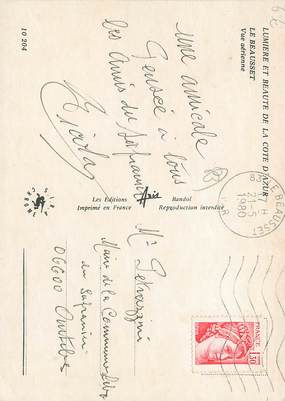 10 204
LUMIERE ET BEAUTE DE LA COTE D'AZUR
LE BEAUSSET
Vue aérienne
une amicale
Pensée à tous
les amis du Safranier
Les Editions Aris Bandol
Imprimé en France Reproduction interdite
LE BEAUSSET
1980
FRANCE
1,30
Mr Petrazzini
Maire de la Commune Libre
du Safranier
06600 Antibes